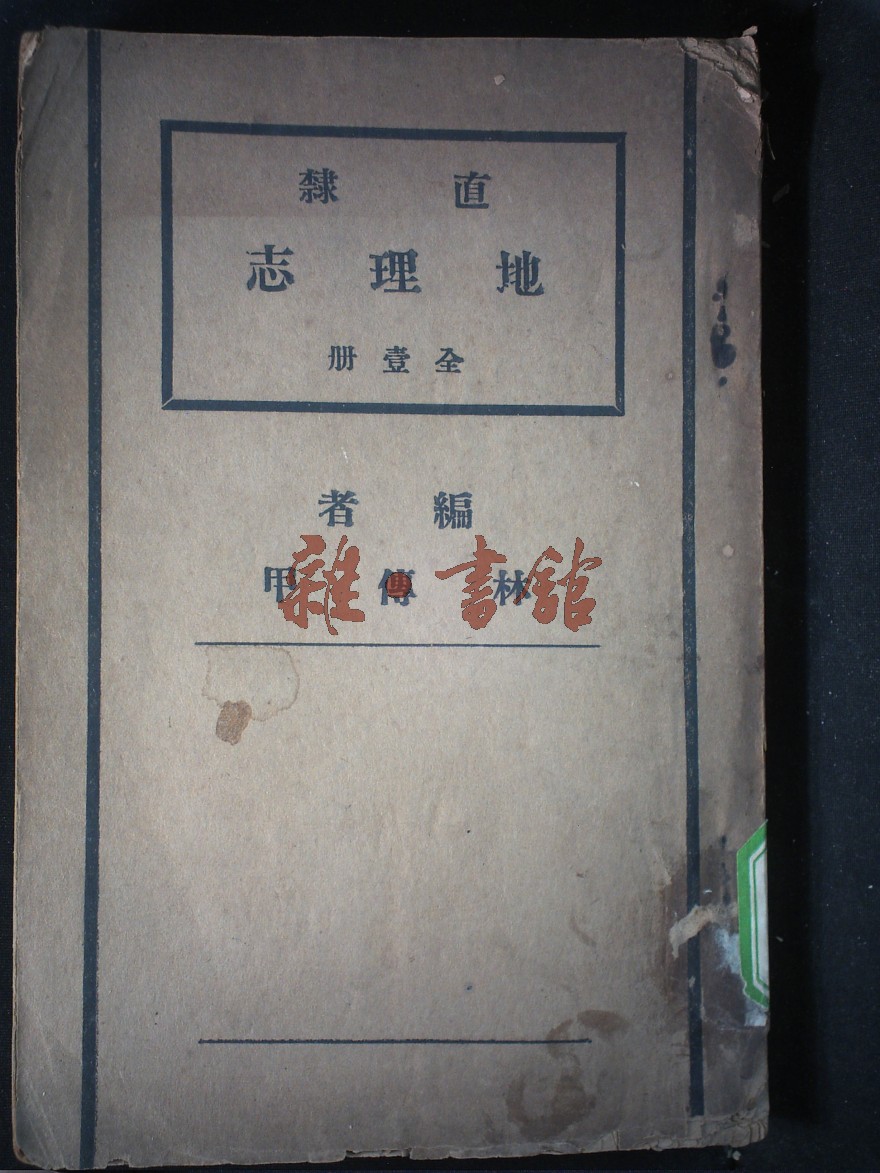 直隸
地理志
全壹册
編者
林傳甲
雜書館